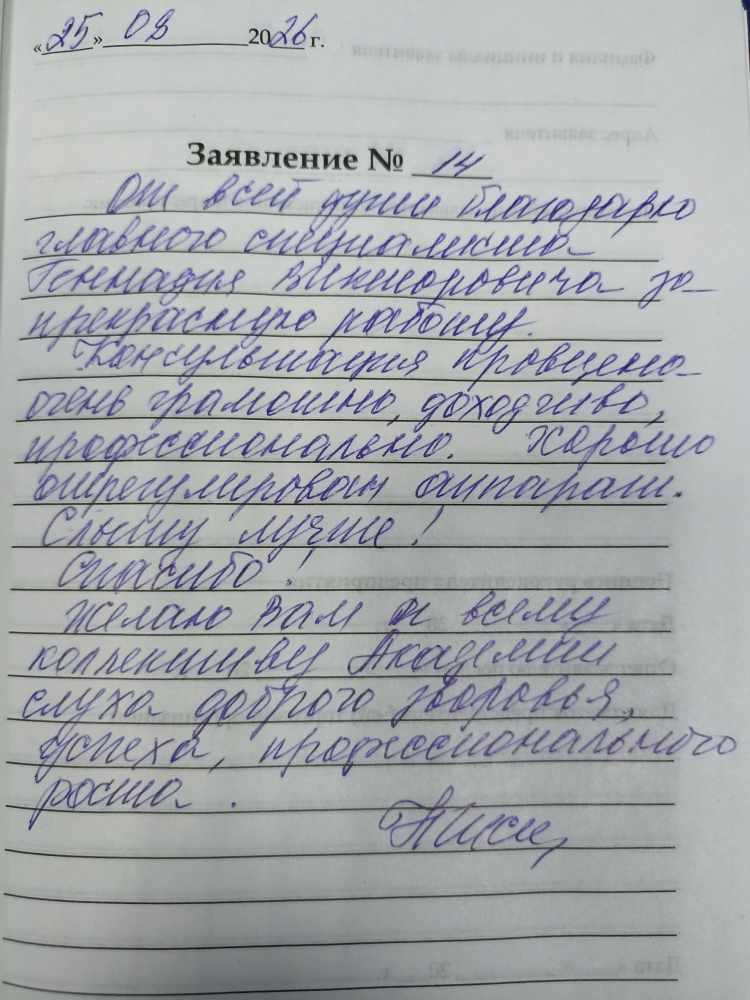 «25» 03 2026 г.
Заявление № 14
От всей души благодарю
главного специалиста
Геннадия Викторовича за
прекрасную работу.
Консультация проведена
очень грамотно, доходчиво,
профессионально. Хорошо
отрегулирован аппарат.
Слышу лучше!
Спасибо!
Желаю Вам и всему
коллективу Академии
слуха доброго здоровья,
успеха, профессионального
роста.